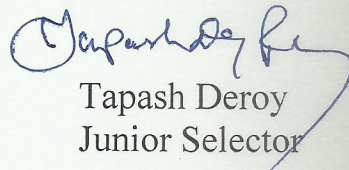 Tapash Deroy
Tapash Deroy
Junior Selector